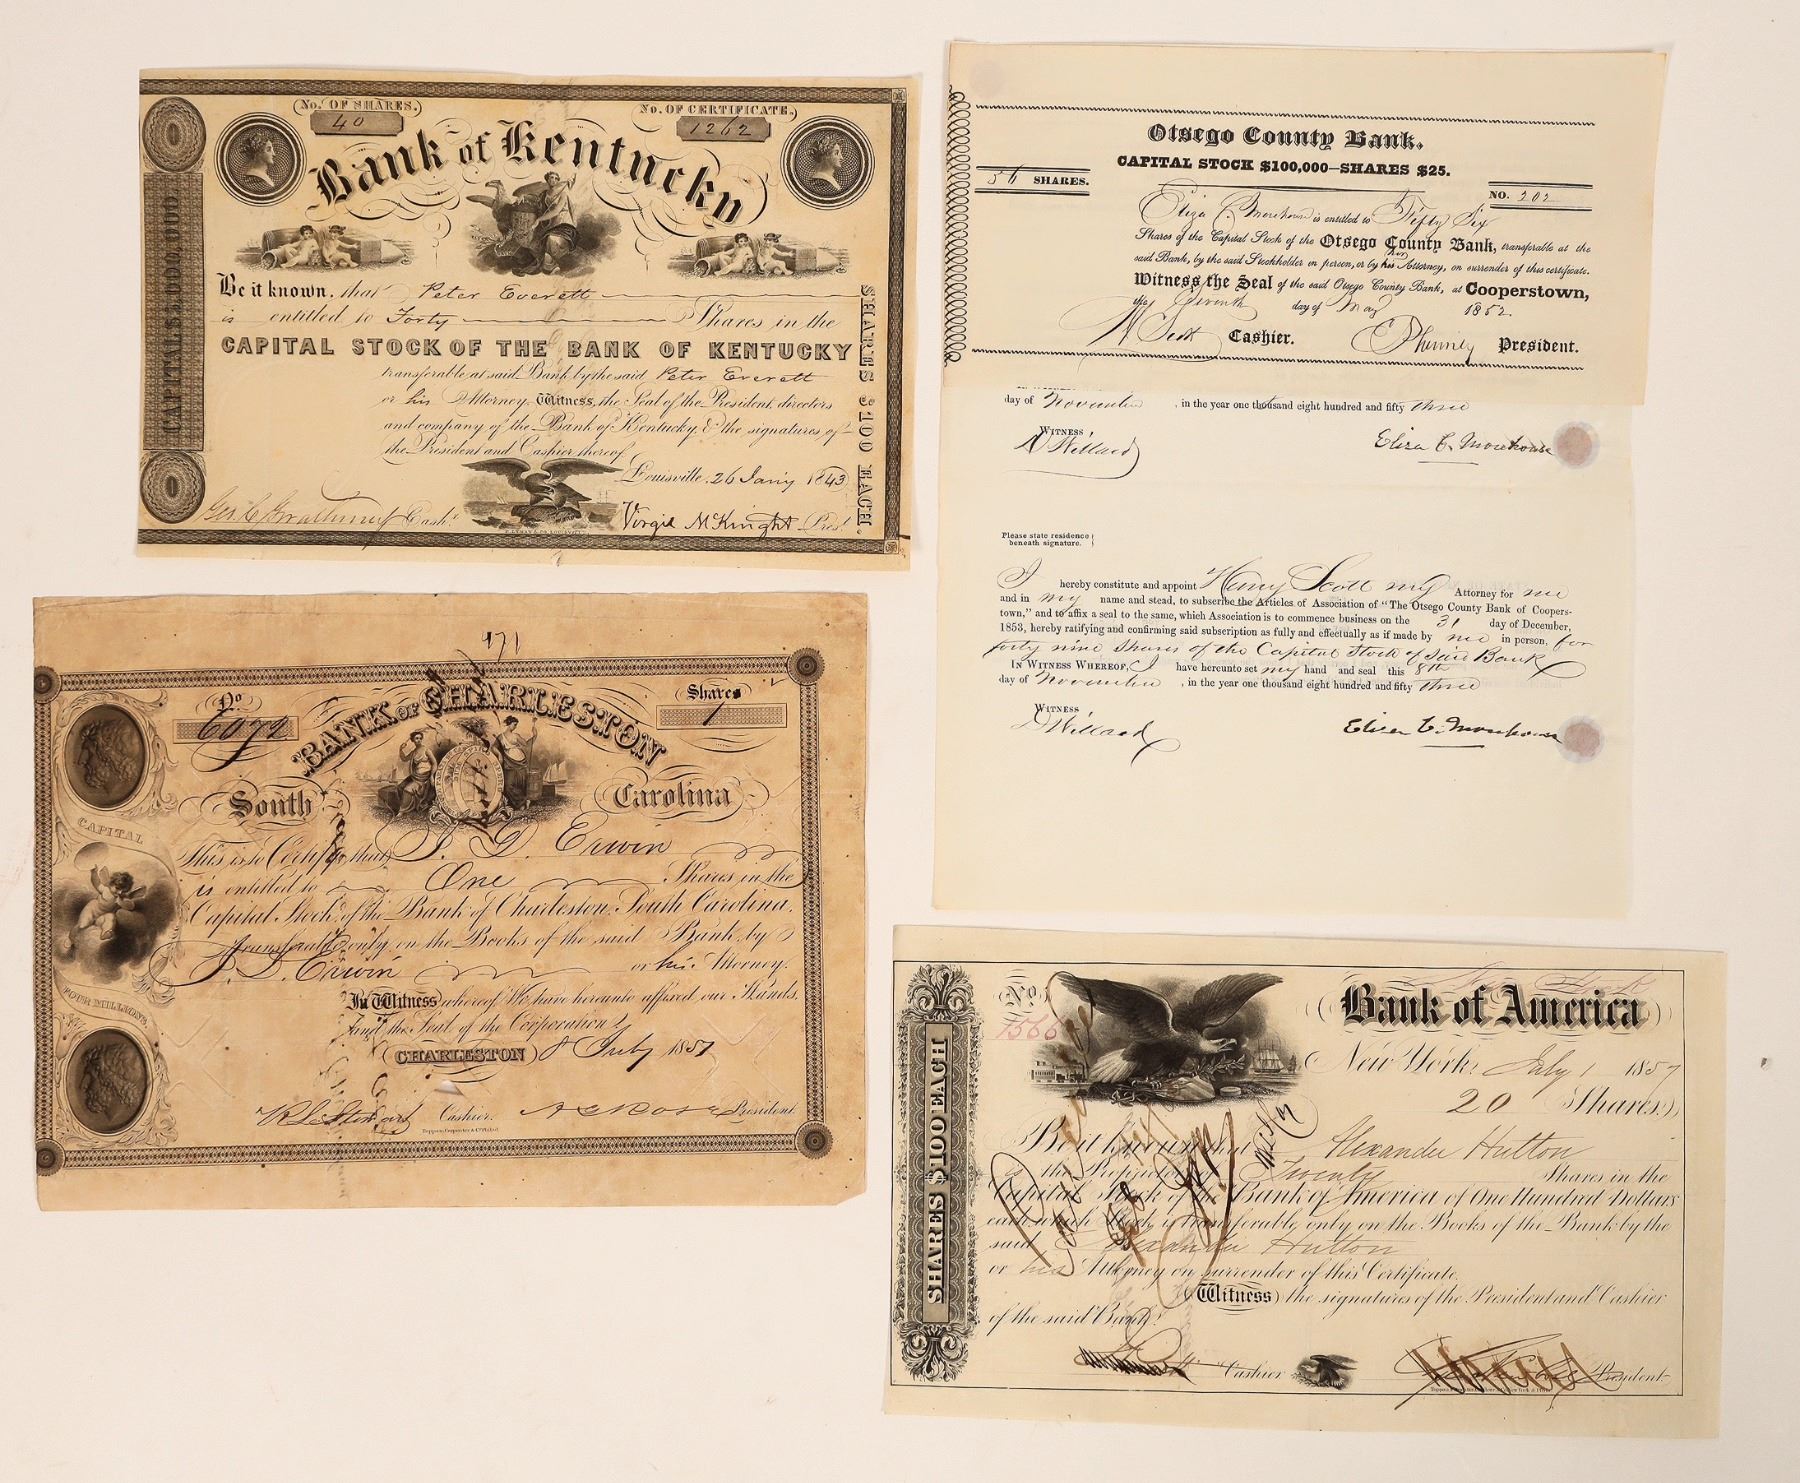 No. OF SHARES.
40
No. OF CERTIFICATE.
1262
Bank of Kentucky
CAPITAL $5,000,000.
Be it known, that Peter Everett
is entitled to Forty Shares in the
CAPITAL STOCK OF THE BANK OF KENTUCKY
transferable at said Bank by the said Peter Everett
or his Attorney. Witness, the Seal of the President, directors
and company of the Bank of Kentucky, & the signatures of
the President and Cashier thereof.
Louisville, 26 Jan'y 1843
Cash.r Virgil McKnight Pres.t
SHARES $100 EACH.
Otsego County Bank.
CAPITAL STOCK $100,000—SHARES $25.
56 SHARES.
NO. 202
Eliza C. Morehouse is entitled to Fifty Six
Shares of the Capital Stock of the Otsego County Bank, transferable at the
said Bank, by the said Stockholder in person, or by his her Attorney, on surrender of this certificate.
Witness the Seal of the said Otsego County Bank, at Cooperstown,
the Seventh day of May 1852.
H Scott Cashier. President.
day of November, in the year one thousand eight hundred and fifty three
WITNESS
Willard Eliza C. Morehouse
Please state residence
beneath signature.
I hereby constitute and appoint Henry Scott my Attorney for me
and in my name and stead, to subscribe the Articles of Association of "The Otsego County Bank of Coopers-
town," and to affix a seal to the same, which Association is to commence business on the 31 day of December,
1853, hereby ratifying and confirming said subscription as fully and effectually as if made by me in person, for
forty nine shares of the Capital Stock of said Bank
IN WITNESS WHEREOF, I have hereunto set my hand and seal this 8th
day of November, in the year one thousand eight hundred and fifty three
WITNESS
Willard Eliza C. Morehouse
171
No
6072
Shares
1
BANK OF CHARLESTON
South Carolina
CAPITAL
FOUR MILLIONS
This is to Certify that J. D. Erwin
is entitled to One Shares in the
Capital Stock of the Bank of Charleston, South Carolina.
transferable only on the Books of the said Bank, by
J. D. Erwin or his Attorney.
In Witness whereof We have hereunto affixed our Hands.
and the Seal of the Corporation
CHARLESTON 8 July 1857
Cashier. President
Toppan, Carpenter & Co. Philad.
No
1566
New York
Bank of America
New York, July 1 1857
20 Shares
SHARES $100 EACH
Be it known that Alexander Hutton
is the Proprietor of Twenty Shares in the
Capital Stock of the Bank of America of One Hundred Dollars
each which Stock is transferable only on the Books of the Bank by the
said Alexander Hutton
or his Attorney on surrender of this Certificate.
Witness the signatures of the President and Cashier
of the said Bank.
Cashier President